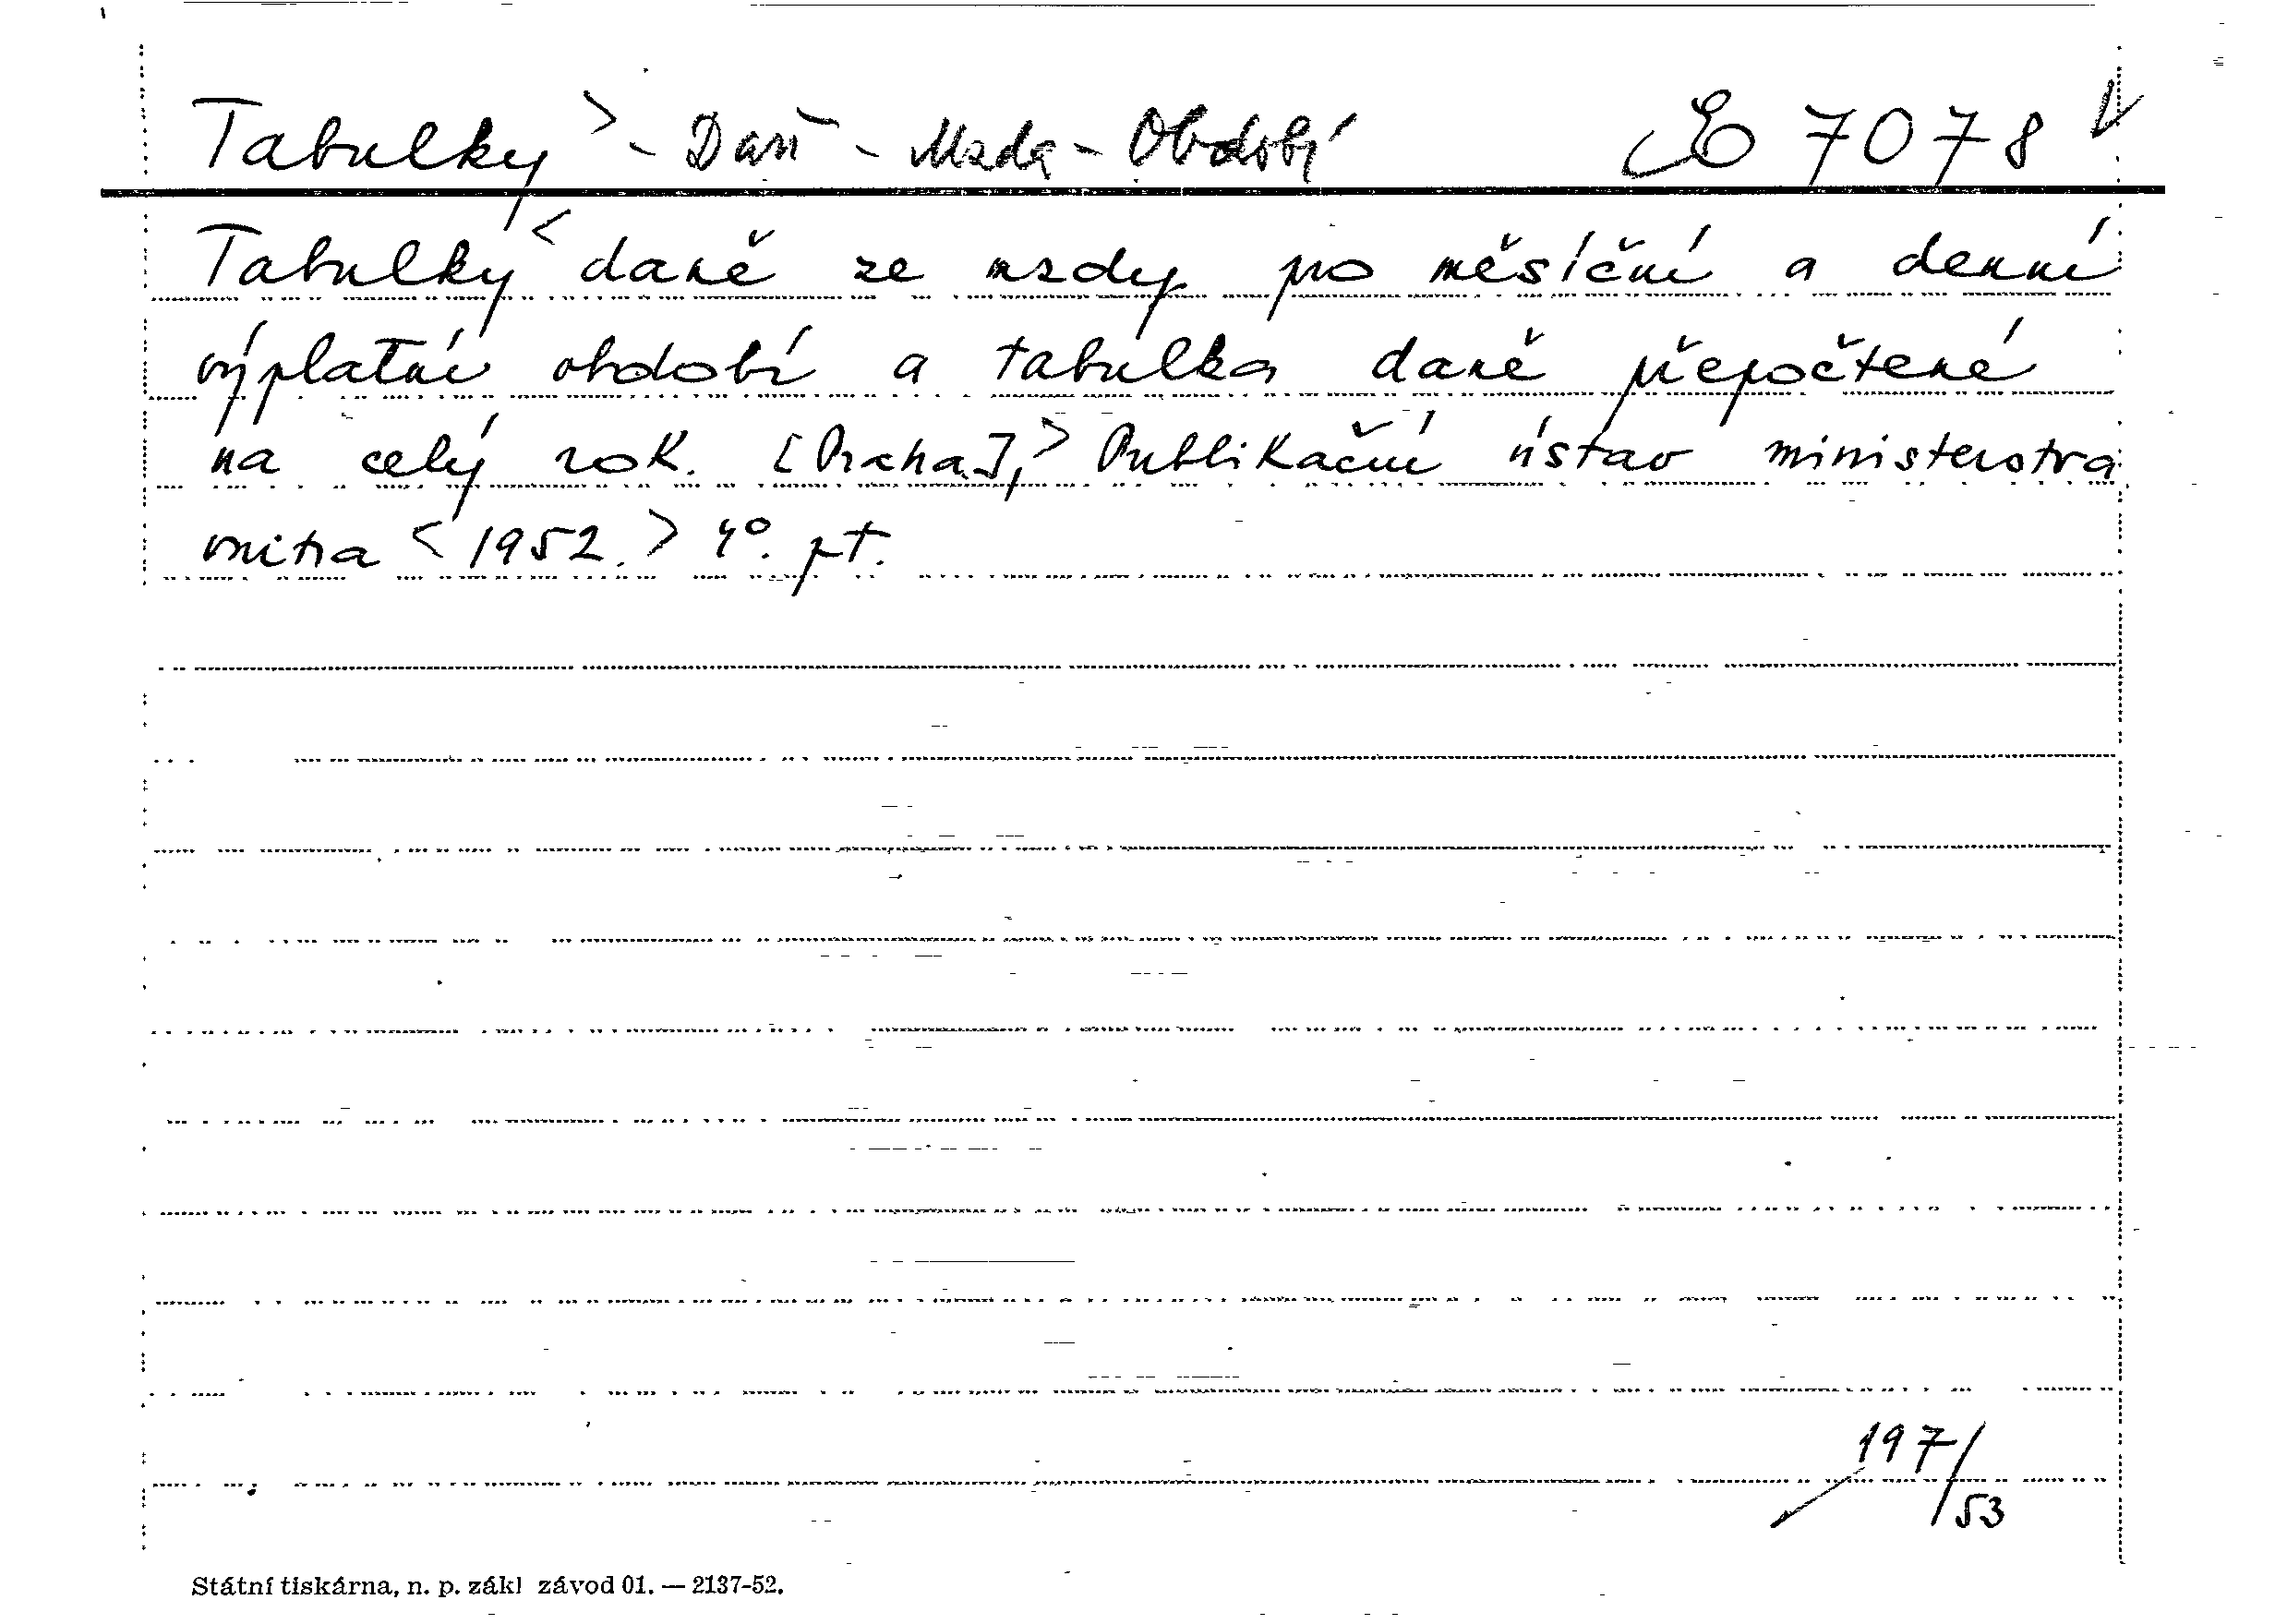 Tabulky > - Daň - Mzda - Období E 7078
Tabulky < daně ze mzdy pro měsíční a denní
výplatní období a tabulka daně přepočtené
na celý rok. [Praha], > Publikační ústav ministerstva
vnitra < 1952. > 4°. pt.
197/53
Státní tiskárna, n. p. zákl závod 01. — 2137-52.